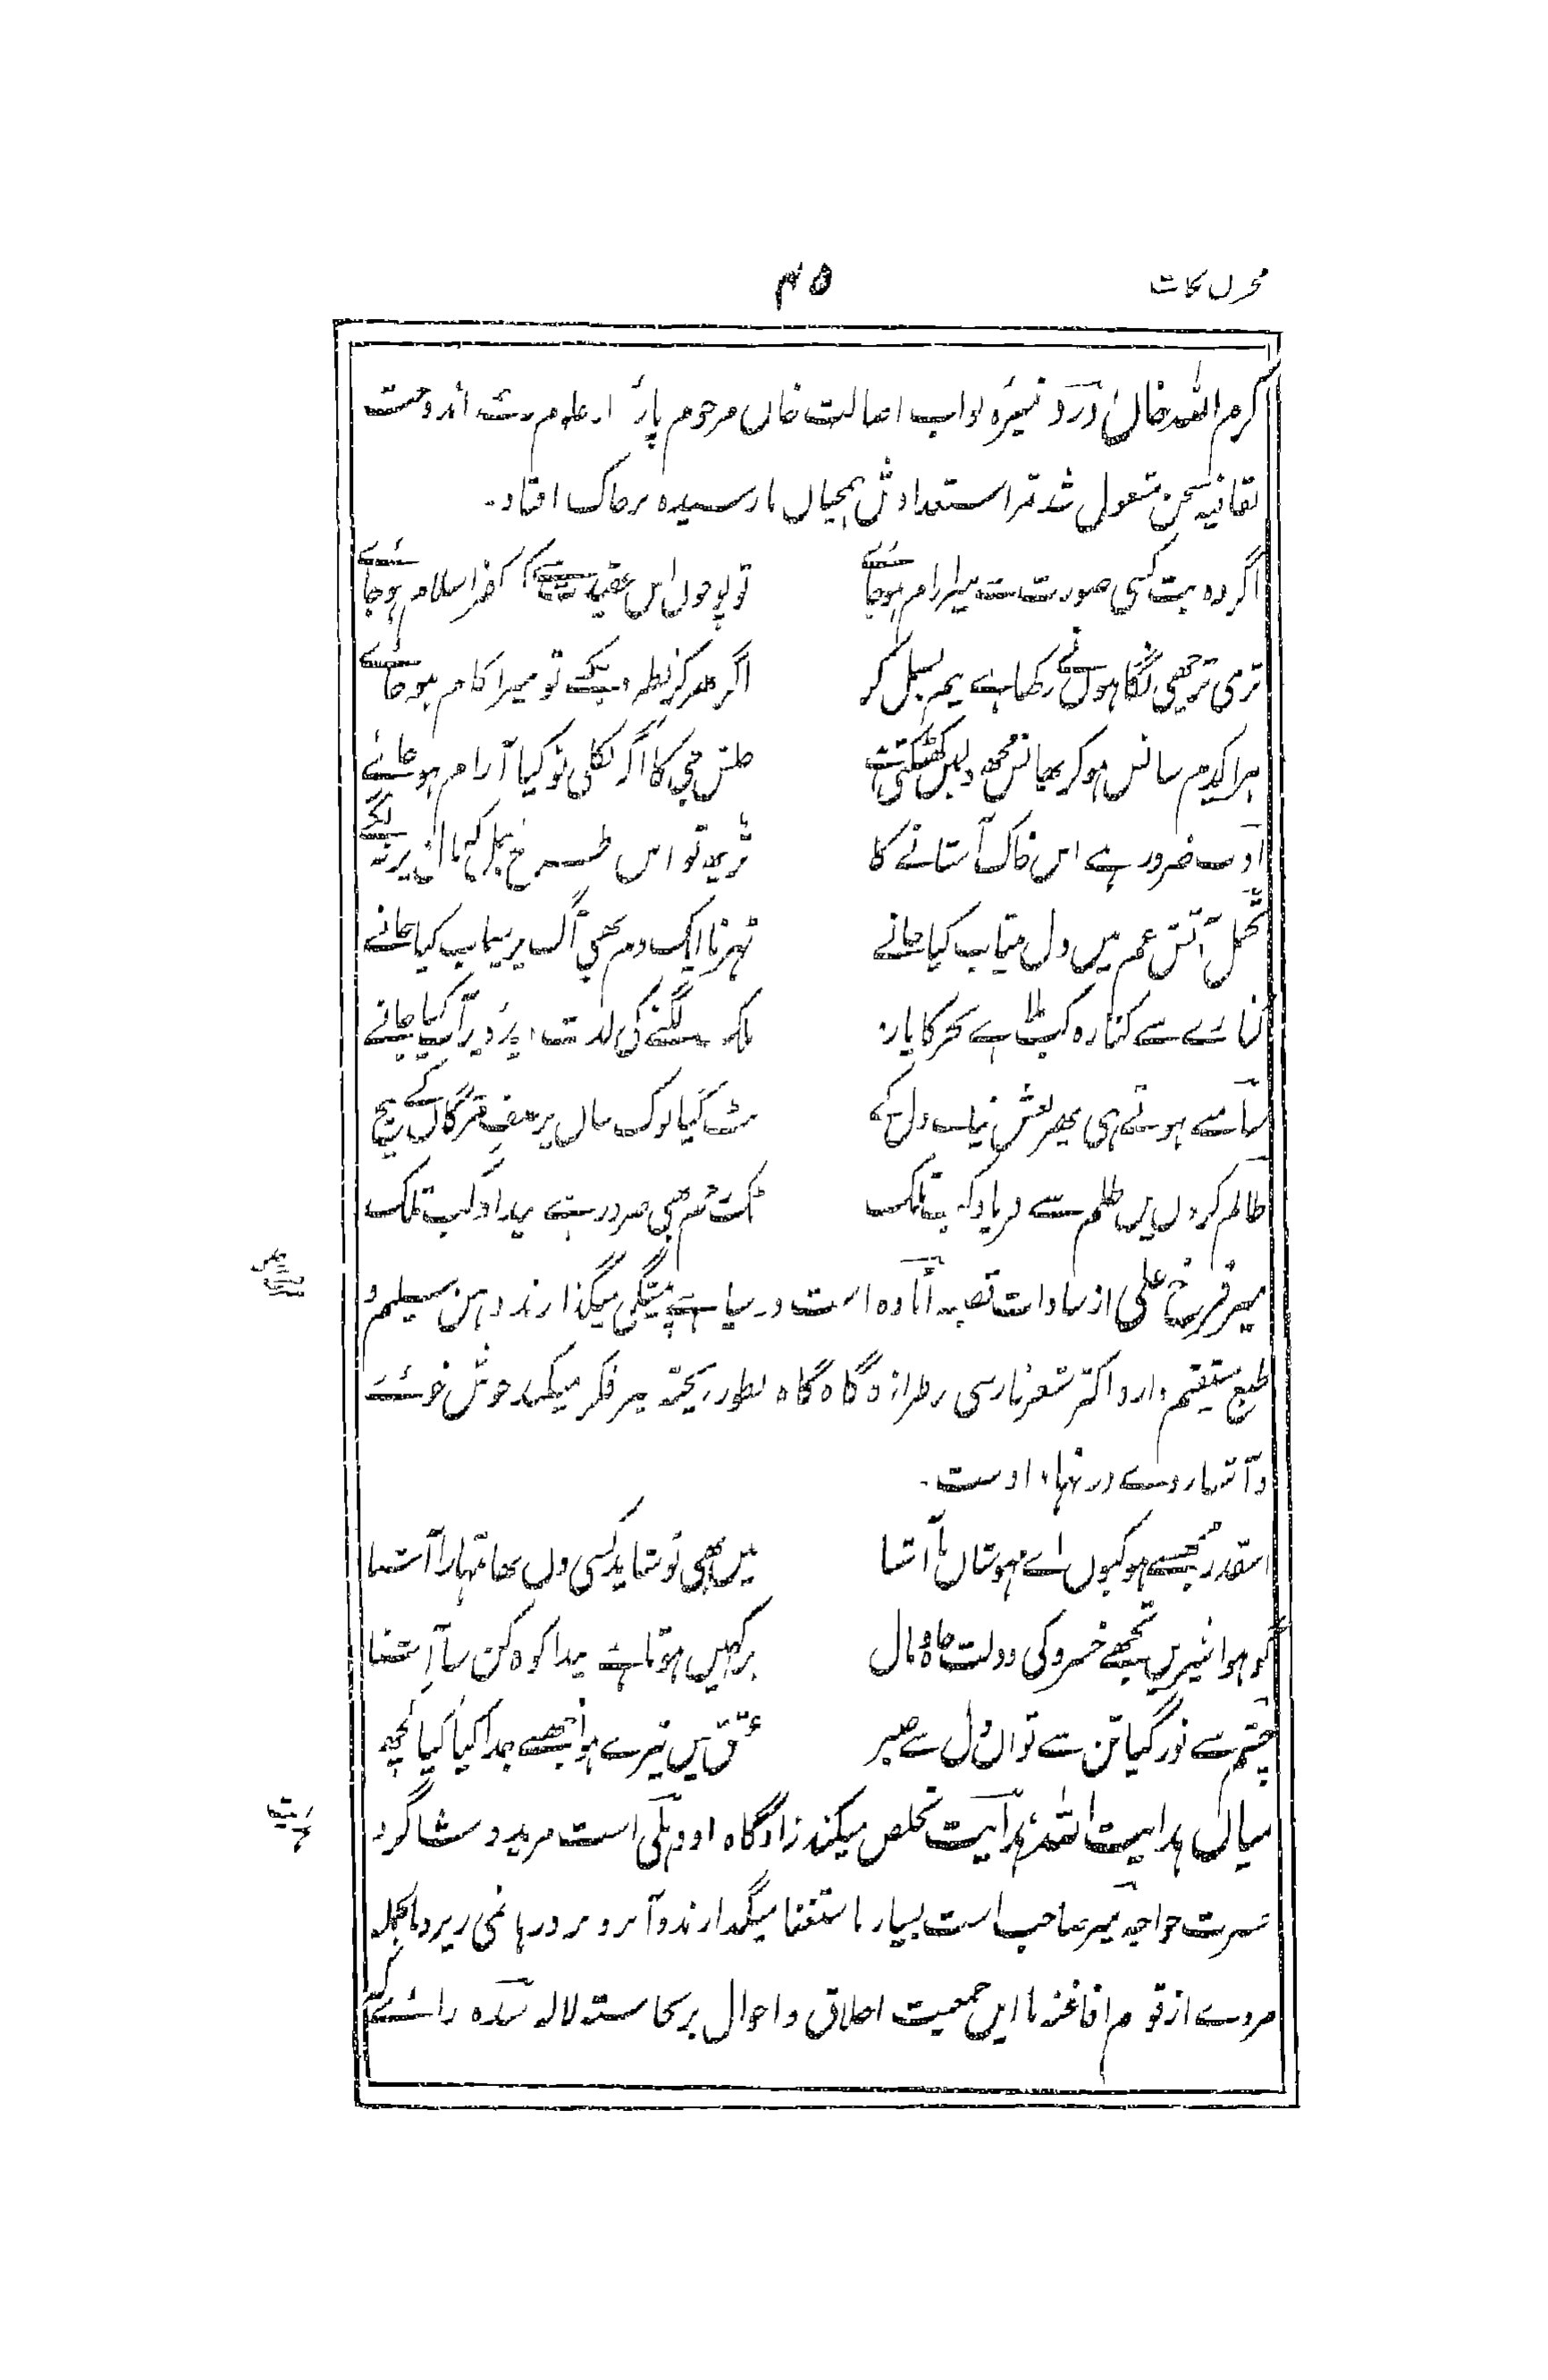 مخزن نکات
۴۵
کرم اللہ خاں درد نبیرہ نواب اصالت خاں مرحوم پارۂ از علوم رسمیہ اندوخت
بقافیہ سخن مشغول شد ثمر استعدادش ہمچناں نارسیدہ برخاک افتاد۔
اگر وہ بت کسی صورت سے میرا رام ہو جائے
تو پوجوں اس عقیدت سے کہ کفر اسلام ہو جائے
تری ترچھی نگاہوں نے رکھا ہے نیم بسمل کر
اگر مڑ کر نظر دیکھے تو میرا کام ہو جائے
ہر اکدم سانس ہو کر پھانس مجھ دل میں کھٹکتی ہے
خلش جی کا اگر نکلی تو کیا آرام ہو جائے
ادب ضرور ہے اس خاک آستانے کا
تڑپھ تو اس طرح بسمل کہ بال و پر نہ لگے
تحمل آتش غم میں دل بیتاب کیا جانے
ٹہرنا ایک دم بھی آگ پر سیماب کیا جانے
کنارے سے کنارہ کب ملا ہے بحر کا یارو
پلک لگنے کی لذت دیدۂ پر آب کیا جانے
سامنے ہوتے ہی پھر نعش نہ پائی دل کی
بٹ گیا نوک سناں پر صف مژگاں کے بیچ
ظالم کروں میں ظلم سے فریاد کب تلک
ٹک شرم بھی ضرور ہے بیداد کب تلک
میر فرخ علی از سادات قصبہ اٹاوہ است در سپاہی پیشگی میگذارند ذہن سلیم و
طبع مستقیم دارد اکثر شعر فارسی بطراز و گاہ گاہ بطور ریختہ نیز فکر میکند خوش خوئے
و آشنا روے در نہاد اوست۔
اسقدر مجھسے ہو کیوں اے مہوشاں نا آشنا
میں بھی تو شاید کسی دل تھا تمہارا آشنا
گو ہوا شیریں تجھے خسرو کی دولت جاہ و مال
پر کہیں ہوتا ہے پیدا کوہ کن سا آشنا
چشم سے نور گیا تن سے تواں دل سے صبر
عشق میں تیرے ہوا مجھسے جدا کیا کیا کچھ
میاں ہدایت اللہ ہدایت تخلص میکند زادگاہ او دہلی است مرید و شاگرد
حضرت خواجہ میر صاحب است بسیار باستغنا میگذارند و آبرو بر درہا نمی ریزد بالجملہ
مردے از قوم افاغنہ با ایں جمعیت اخلاق و احوال برنخاستہ لالہ سدہ رائے کہ